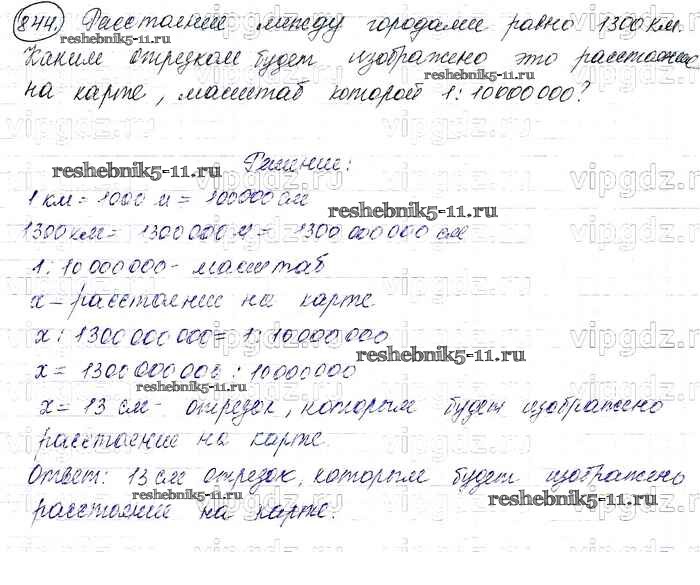 844. Расстояние между городами равно 1300 км.
Каким отрезком будет изображено это расстояние
на карте, масштаб которой 1:10000000?
Решение:
1 км = 1000 м = 100000 см
1300 км = 1300 000 м = 1300 000 00 см
1:10 000000 - масштаб
x - расстояние на карте.
x : 1300 000 000 = 1:10000000
x = 1300 000 000 : 10000000
x = 13 см - отрезок, которым будет изображено
расстояние на карте.
Ответ: 13 см отрезок, которым будет изображено
расстояние на карте.
reshebnik5-11.ru
reshebnik5-11.ru
reshebnik5-11.ru
reshebnik5-11.ru
reshebnik5-11.ru
reshebnik5-11.ru
reshebnik5-11.ru
reshebnik5-11.ru
vipgdz.ru